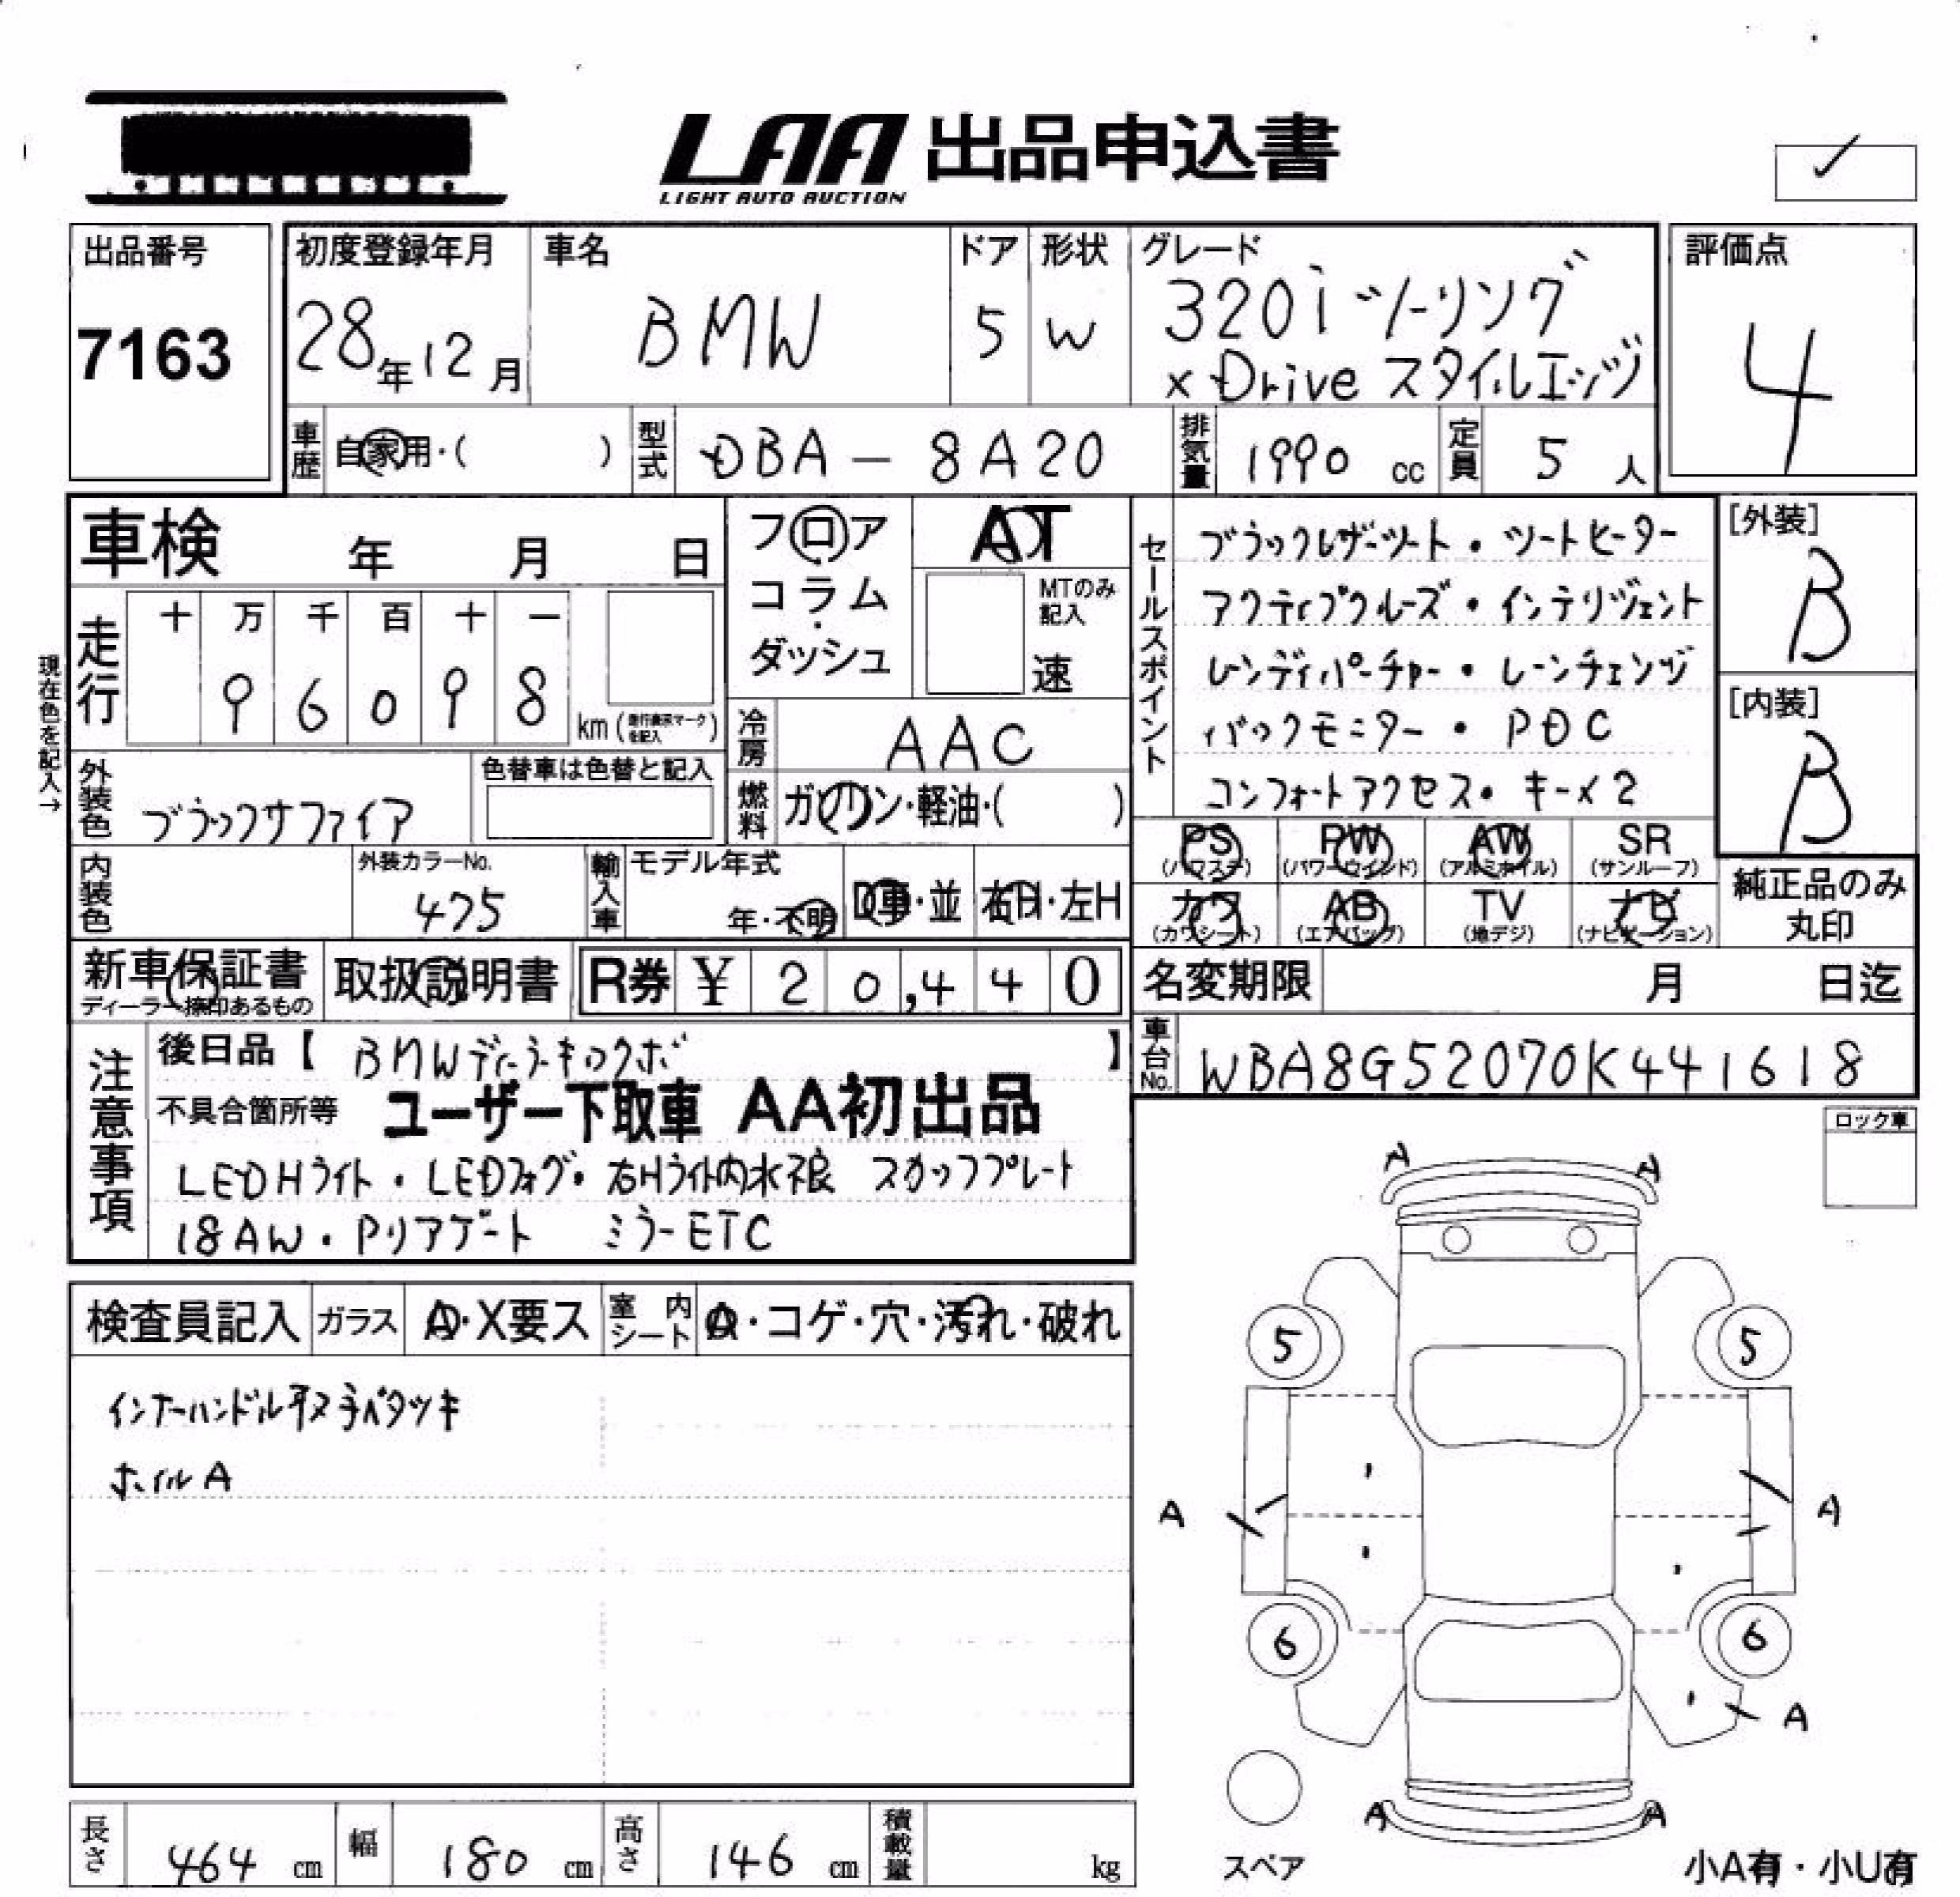 LAA 出品申込書
LIGHT AUTO AUCTION
出品番号
7163
初度登録年月
28年12月
車名
BMW
ドア
5
形状
W
グレード
320i ツーリング
xDrive スタイルエッジ
評価点
4
車歴
自家用・( )
型式
DBA-8A20
排気量
1990 cc
定員
5 人
車検 年 月 日
フロア
コラム
ダッシュ
AT
MTのみ記入
速
セールスポイント
ブラックレザーシート・シートヒーター
アクティブクルーズ・インテリジェント
レンディパーチャー・レーンチェンジ
バックモニター・PDC
コンフォートアクセス・キー×2
[外装]
B
[内装]
B
現在色を記入→
走行
十 万 千 百 十 一
9 6 0 9 8
km (走行表示マークを記入)
冷房
AAC
外装色
ブラックサファイア
色替車は色替と記入
燃料
ガソリン・軽油・( )
PS
(パワステ)
PW
(パワーウインド)
AW
(アルミホイル)
SR
(サンルーフ)
内装色
外装カラーNo.
475
輸入車
モデル年式
年・不明
D車・並
右H・左H
カワ
(カワシート)
AB
(エアバッグ)
TV
(地デジ)
ナビ
(ナビゲーション)
純正品のみ
丸印
新車保証書
ディーラー捺印あるもの
取扱説明書
R券 ¥ 20,440
名変期限 月 日迄
車台No.
WBA8G52070K441618
注意事項
後日品【 BMWディーラーキロクボ 】
不具合箇所等 ユーザー下取車 AA初出品
LEDHライト・LEDフォグ・右Hライト内水滴 スカッフプレート
18AW・Pリアゲート ミラーETC
ロック車
検査員記入
ガラス
A・X要ス
室内シート
A・コゲ・穴・汚れ・破れ
インナーハンドル
ベタツキ
ホイルA
A A
5 5
A A
6 6
A
A A
スペア
小A有・小U有
長さ
464 cm
幅
180 cm
高さ
146 cm
積載量
kg